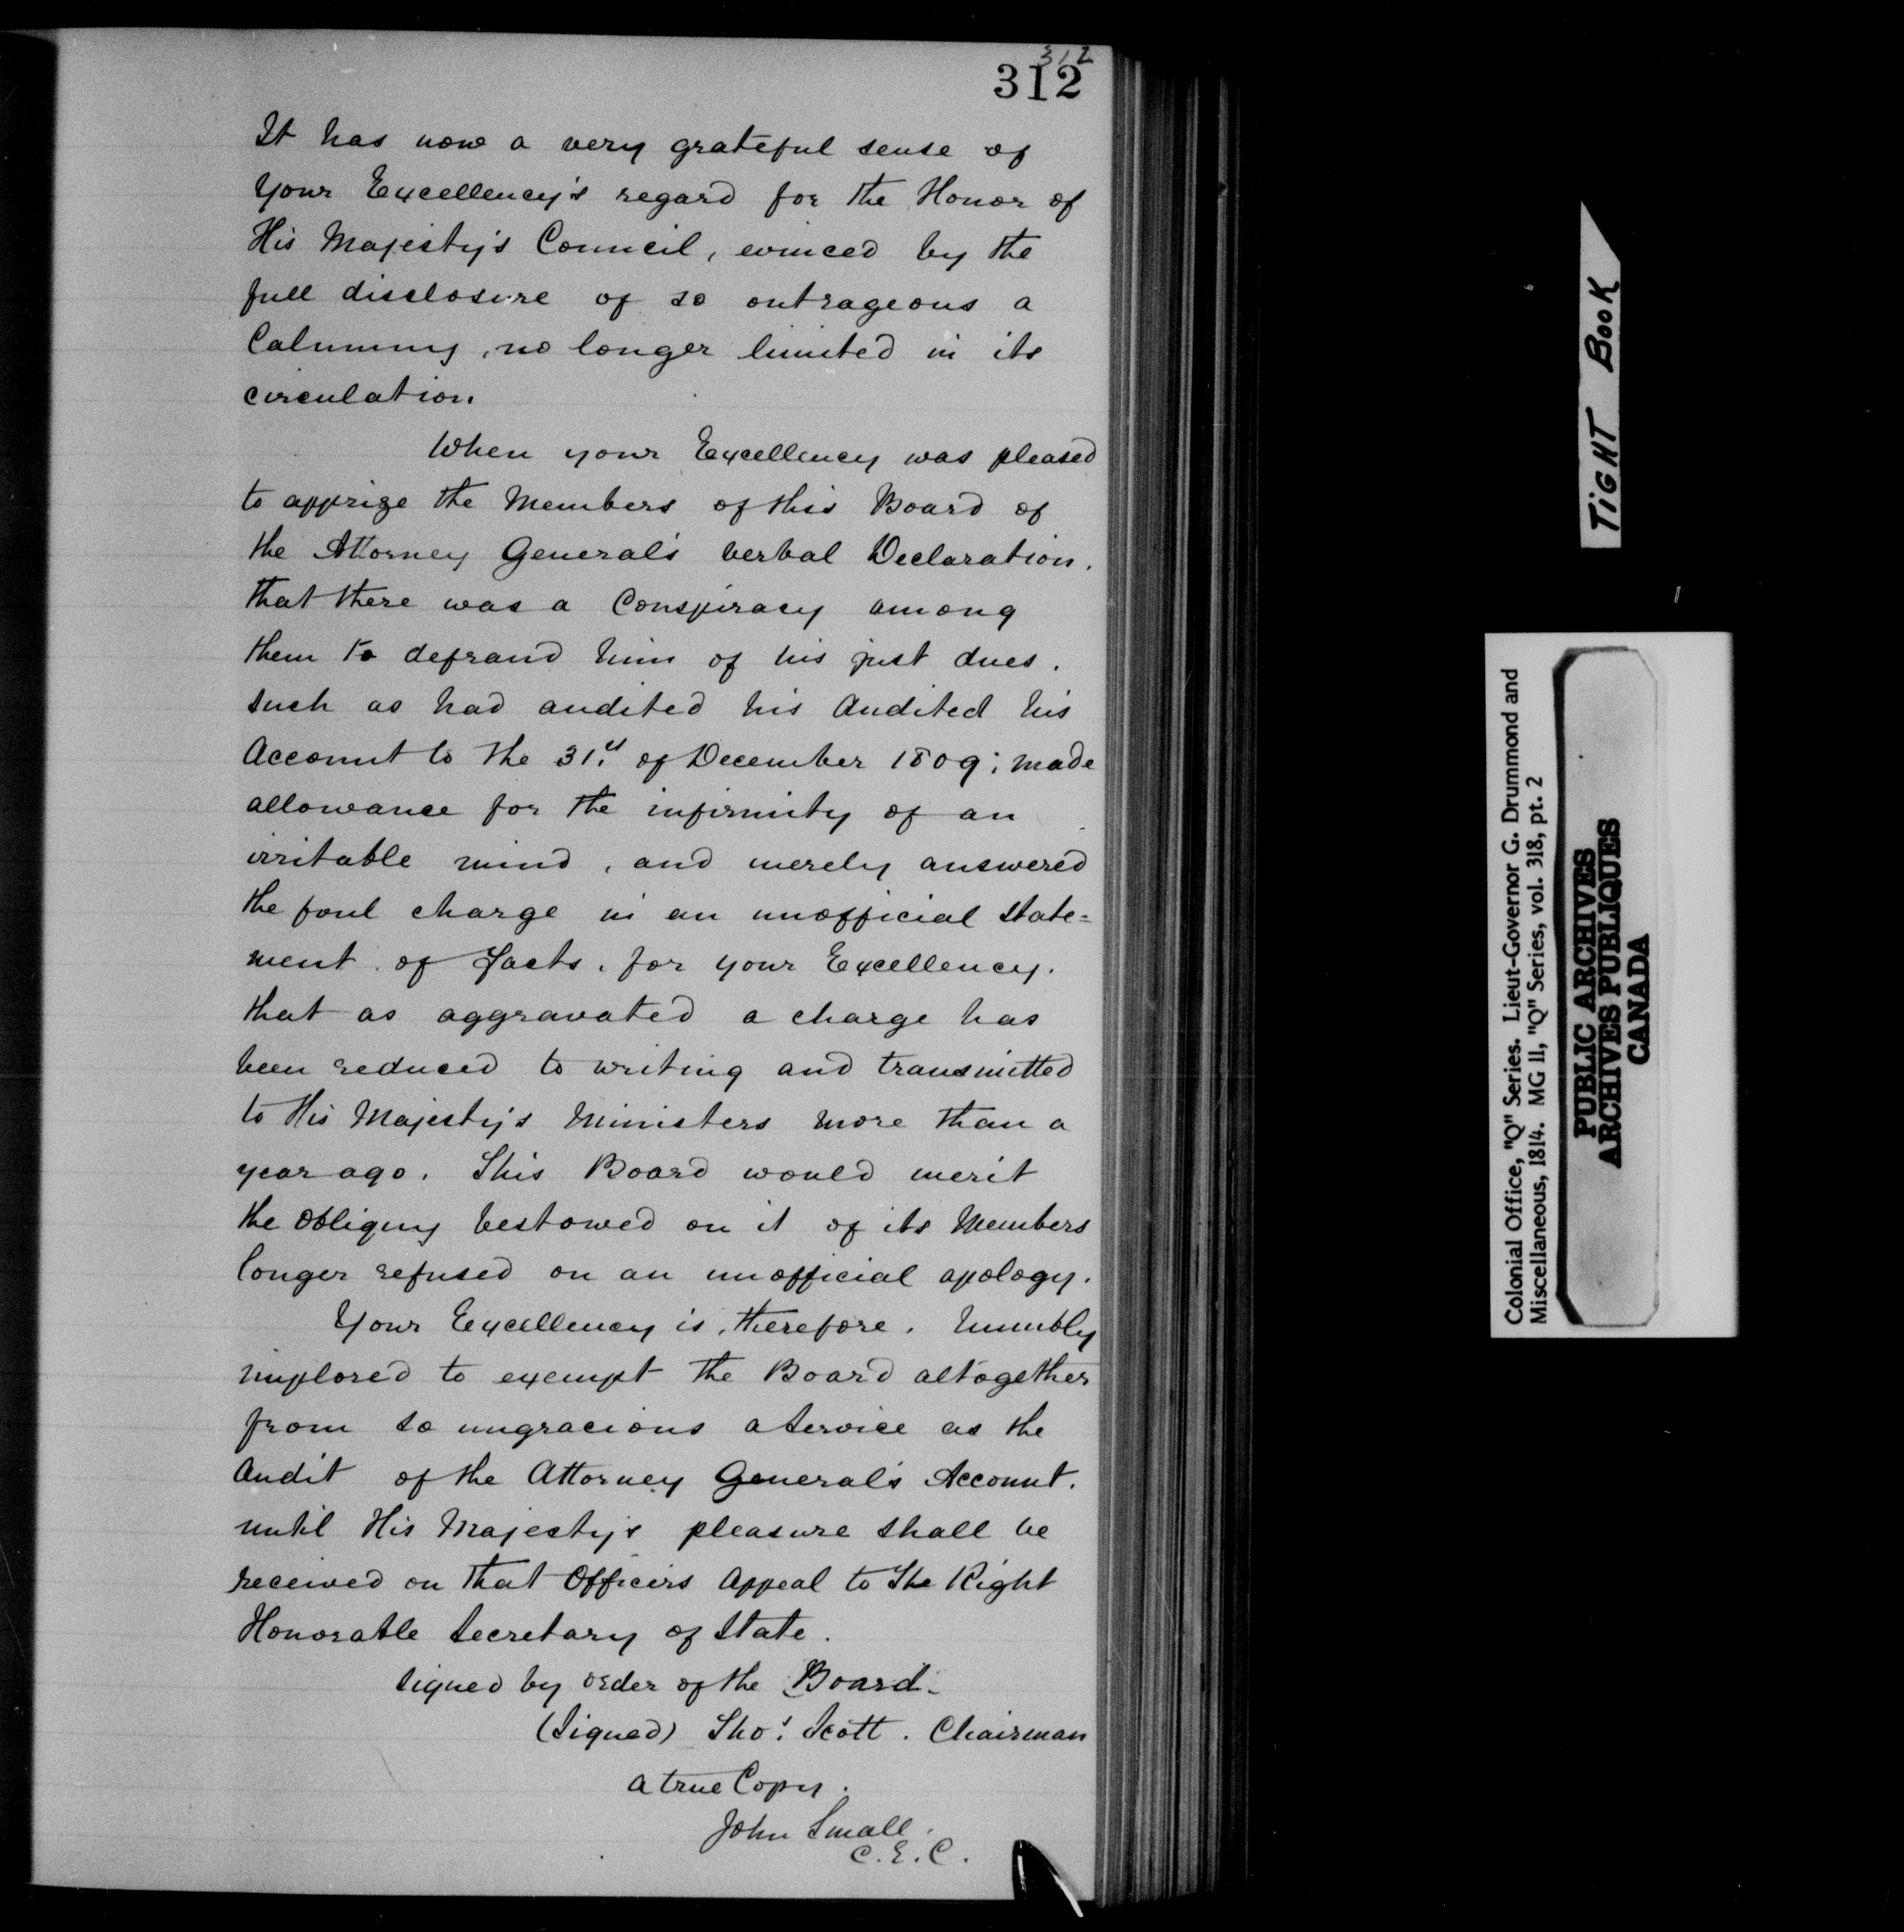 312
312
It has now a very grateful sense of
Your Excellency's regard for the Honor of
His Majesty's Council, evinced by the
full disclosure of so outrageous a
Calumny, no longer limited in its
circulation.
When your Excellency was pleased
to apprize the Members of this Board of
the Attorney General's verbal Declaration.
that there was a Conspiracy among
them to defraud him of his just dues.
such as had audited his Audited his
Account to the 31st of December 1809; made
allowance for the infirmity of an
irritable mind, and merely answered
the foul charge in an unofficial state=
ment of Facts. for your Excellency.
that as aggravated a charge has
been reduced to writing and transmitted
to His Majesty's Ministers more than a
year ago. This Board would merit
the Obliquy bestowed on it of its Members
longer refused on an unofficial apology.
Your Excellency is, therefore. humbly
implored to exempt the Board altogether
from so ungracious a service as the
Audit of the Attorney General's Account.
until His Majesty's pleasure shall be
received on that Officers Appeal to The Right
Honorable Secretary of State.
Signed by order of the Board.
(Signed) Tho: Scott. Chairman
a true Copy.
John Small.
C.E.C.
TiGHT BooK
Colonial Office, "Q" Series. Lieut-Governor G. Drummond and
Miscellaneous, 1814. MG 11, "Q" Series, vol. 318, pt. 2
PUBLIC ARCHIVES
ARCHIVES PUBLIQUES
CANADA